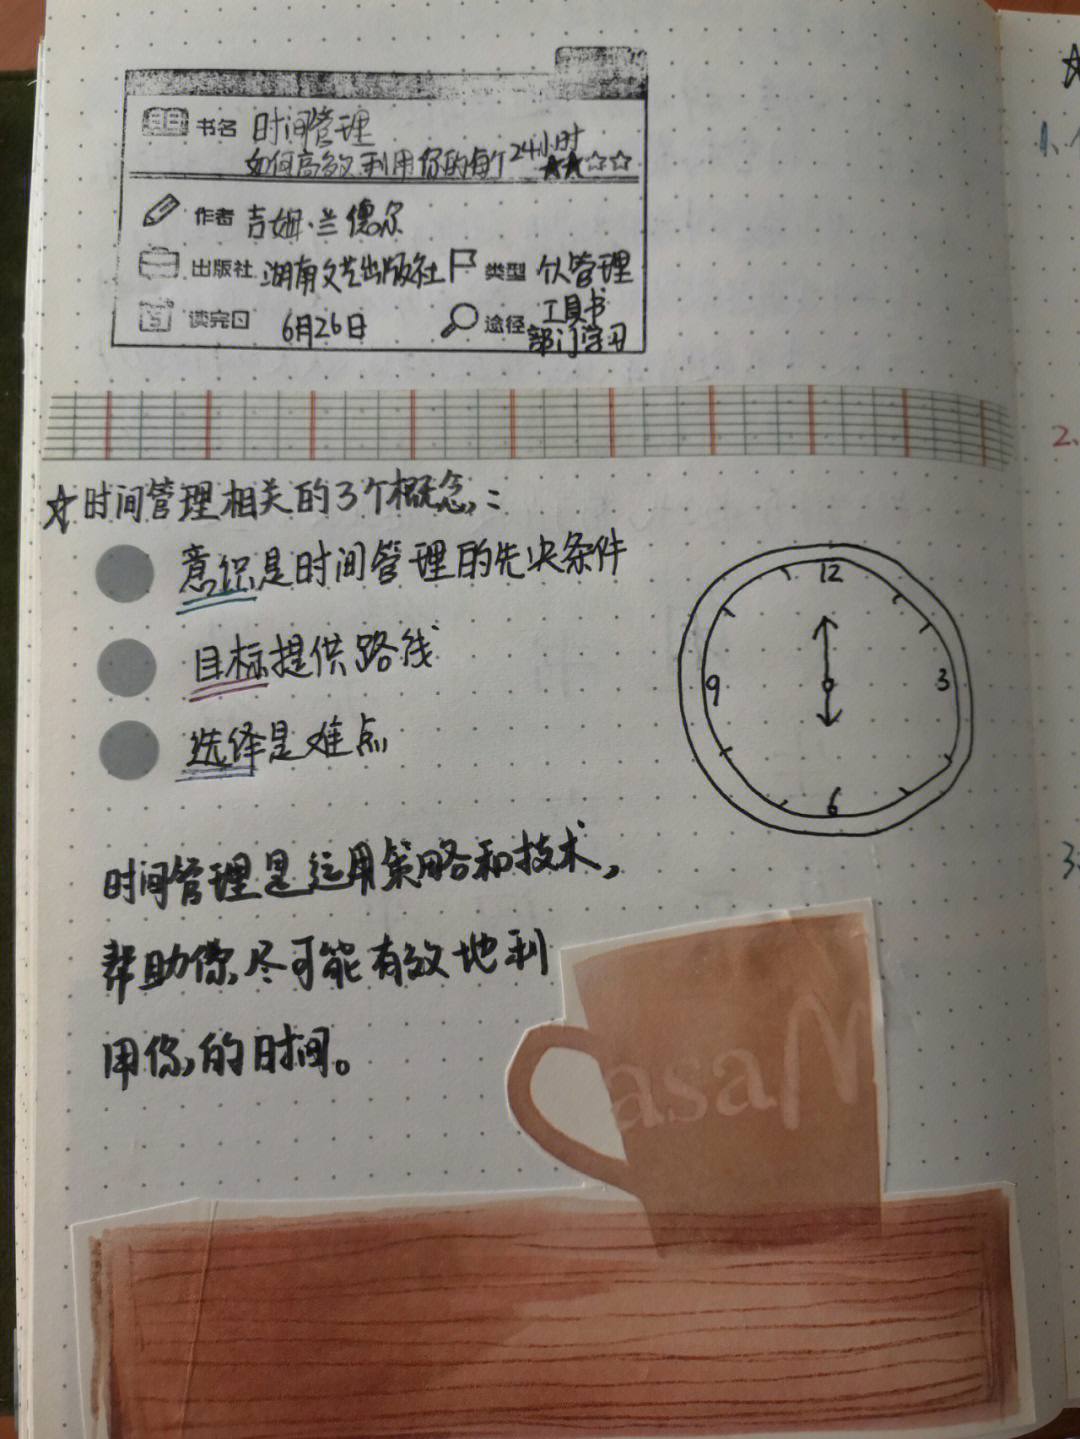 书名 时间管理
如何高效利用你的每个24小时
★★☆☆
作者 吉姆·兰德尔
出版社 湖南文艺出版社 类型 个人管理
工具书
读完日 6月26日 途径 部门学习
☆时间管理相关的3个概念：
意识是时间管理的先决条件
目标提供路线
选择是难点
12
9 3
6
时间管理是运用策略和技术，
帮助你尽可能有效地利
用你的时间。
asaM
1、
2、
3、